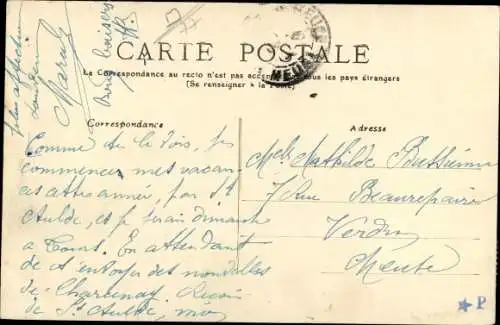 CARTE POSTALE
La Correspondance au recto n'est pas acceptée tous les pays étrangers
(Se renseigner à la Poste)
Correspondance
Adresse
Comme tu le vois, je
commence mes vacan
ces cette année, par St
Aulde, et je serai dimanche
a En attendant
de t'envoyer des nouvelles
de Reçois
de St Aulde, mes
bons baisers
affection
Melle Mathilde
7 Rue Beaurepaire
Verdun
Meuse
★P